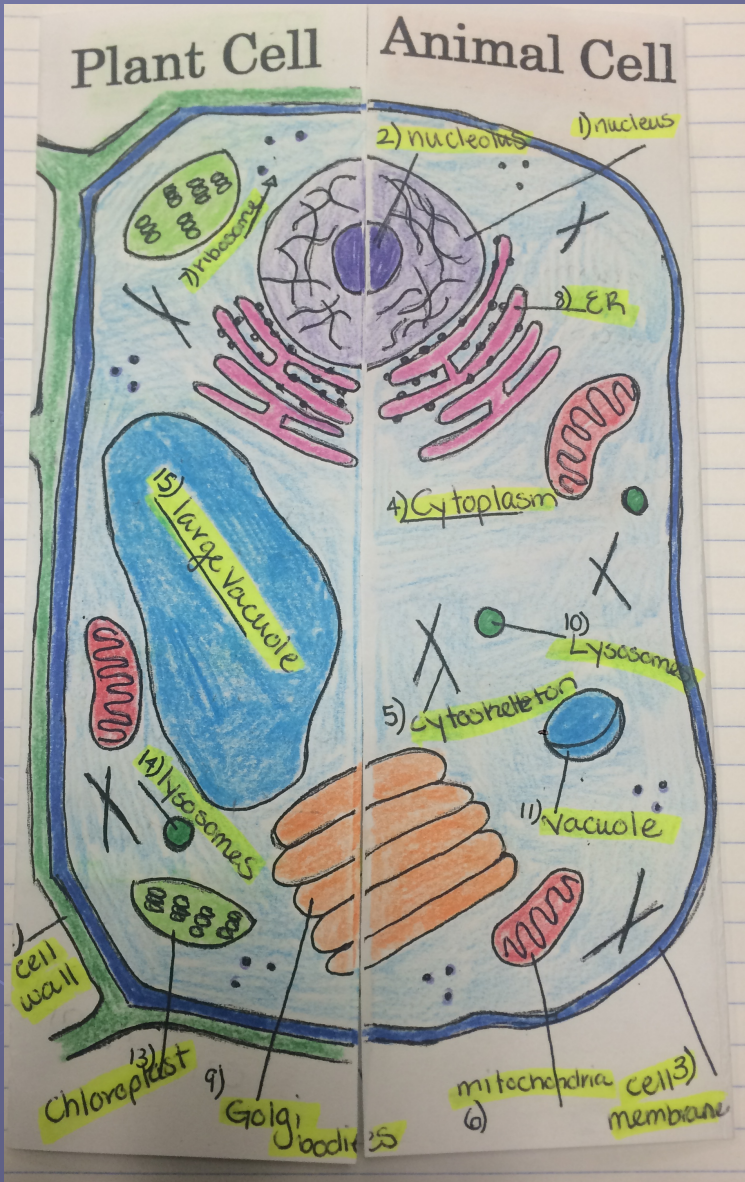 Plant Cell
Animal Cell
2) nucleolus
1) nucleus
7) ribosome
8) ER
15) large Vacuole
4) Cytoplasm
10)
Lysosomes
5) cytoskeleton
14) lysosomes
11)
Vacuole
)
cell
wall
13)
Chloroplast
9)
Golgi
bodies
mitochondria
6)
cell 3)
membrane